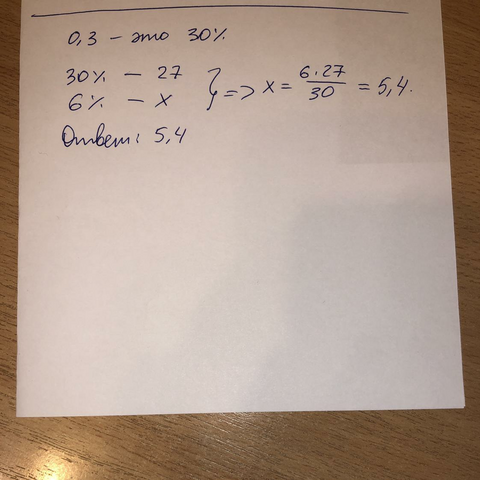 0,3 – это 30%
30% – 27
6% – x } => x = 6·27/30 = 5,4.
Ответ: 5,4